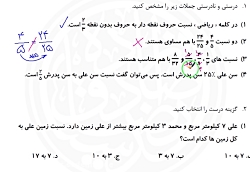 ۱. درستی و نادرستی جملات زیر را مشخص کنید.
۱) در کلمه «ریاضی» نسبت حروف نقطه دار به حروف بدون نقطه ۲/۳ است.
۲) دو نسبت ۴/۵ و ۲۴/۲۵ با هم مساوی هستند.
۳) نسبت های و با هم متناسب هستند.
۴) سن علی ۲۵٪ سن پدرش است. پس می‌توان گفت نسبت سن علی به سن پدرش است.
۲. گزینه درست را انتخاب کنید.
۱) علی ۷ کیلومتر مربع و محمد ۳ کیلومتر مربع بیشتر از علی زمین دارد. نسبت زمین علی به
کل زمین ها کدام است؟
الف. ۷ به ۱۰ ب. ۷ به ۳ ج. ۳ به ۱۰ د. ۷ به ۱۷